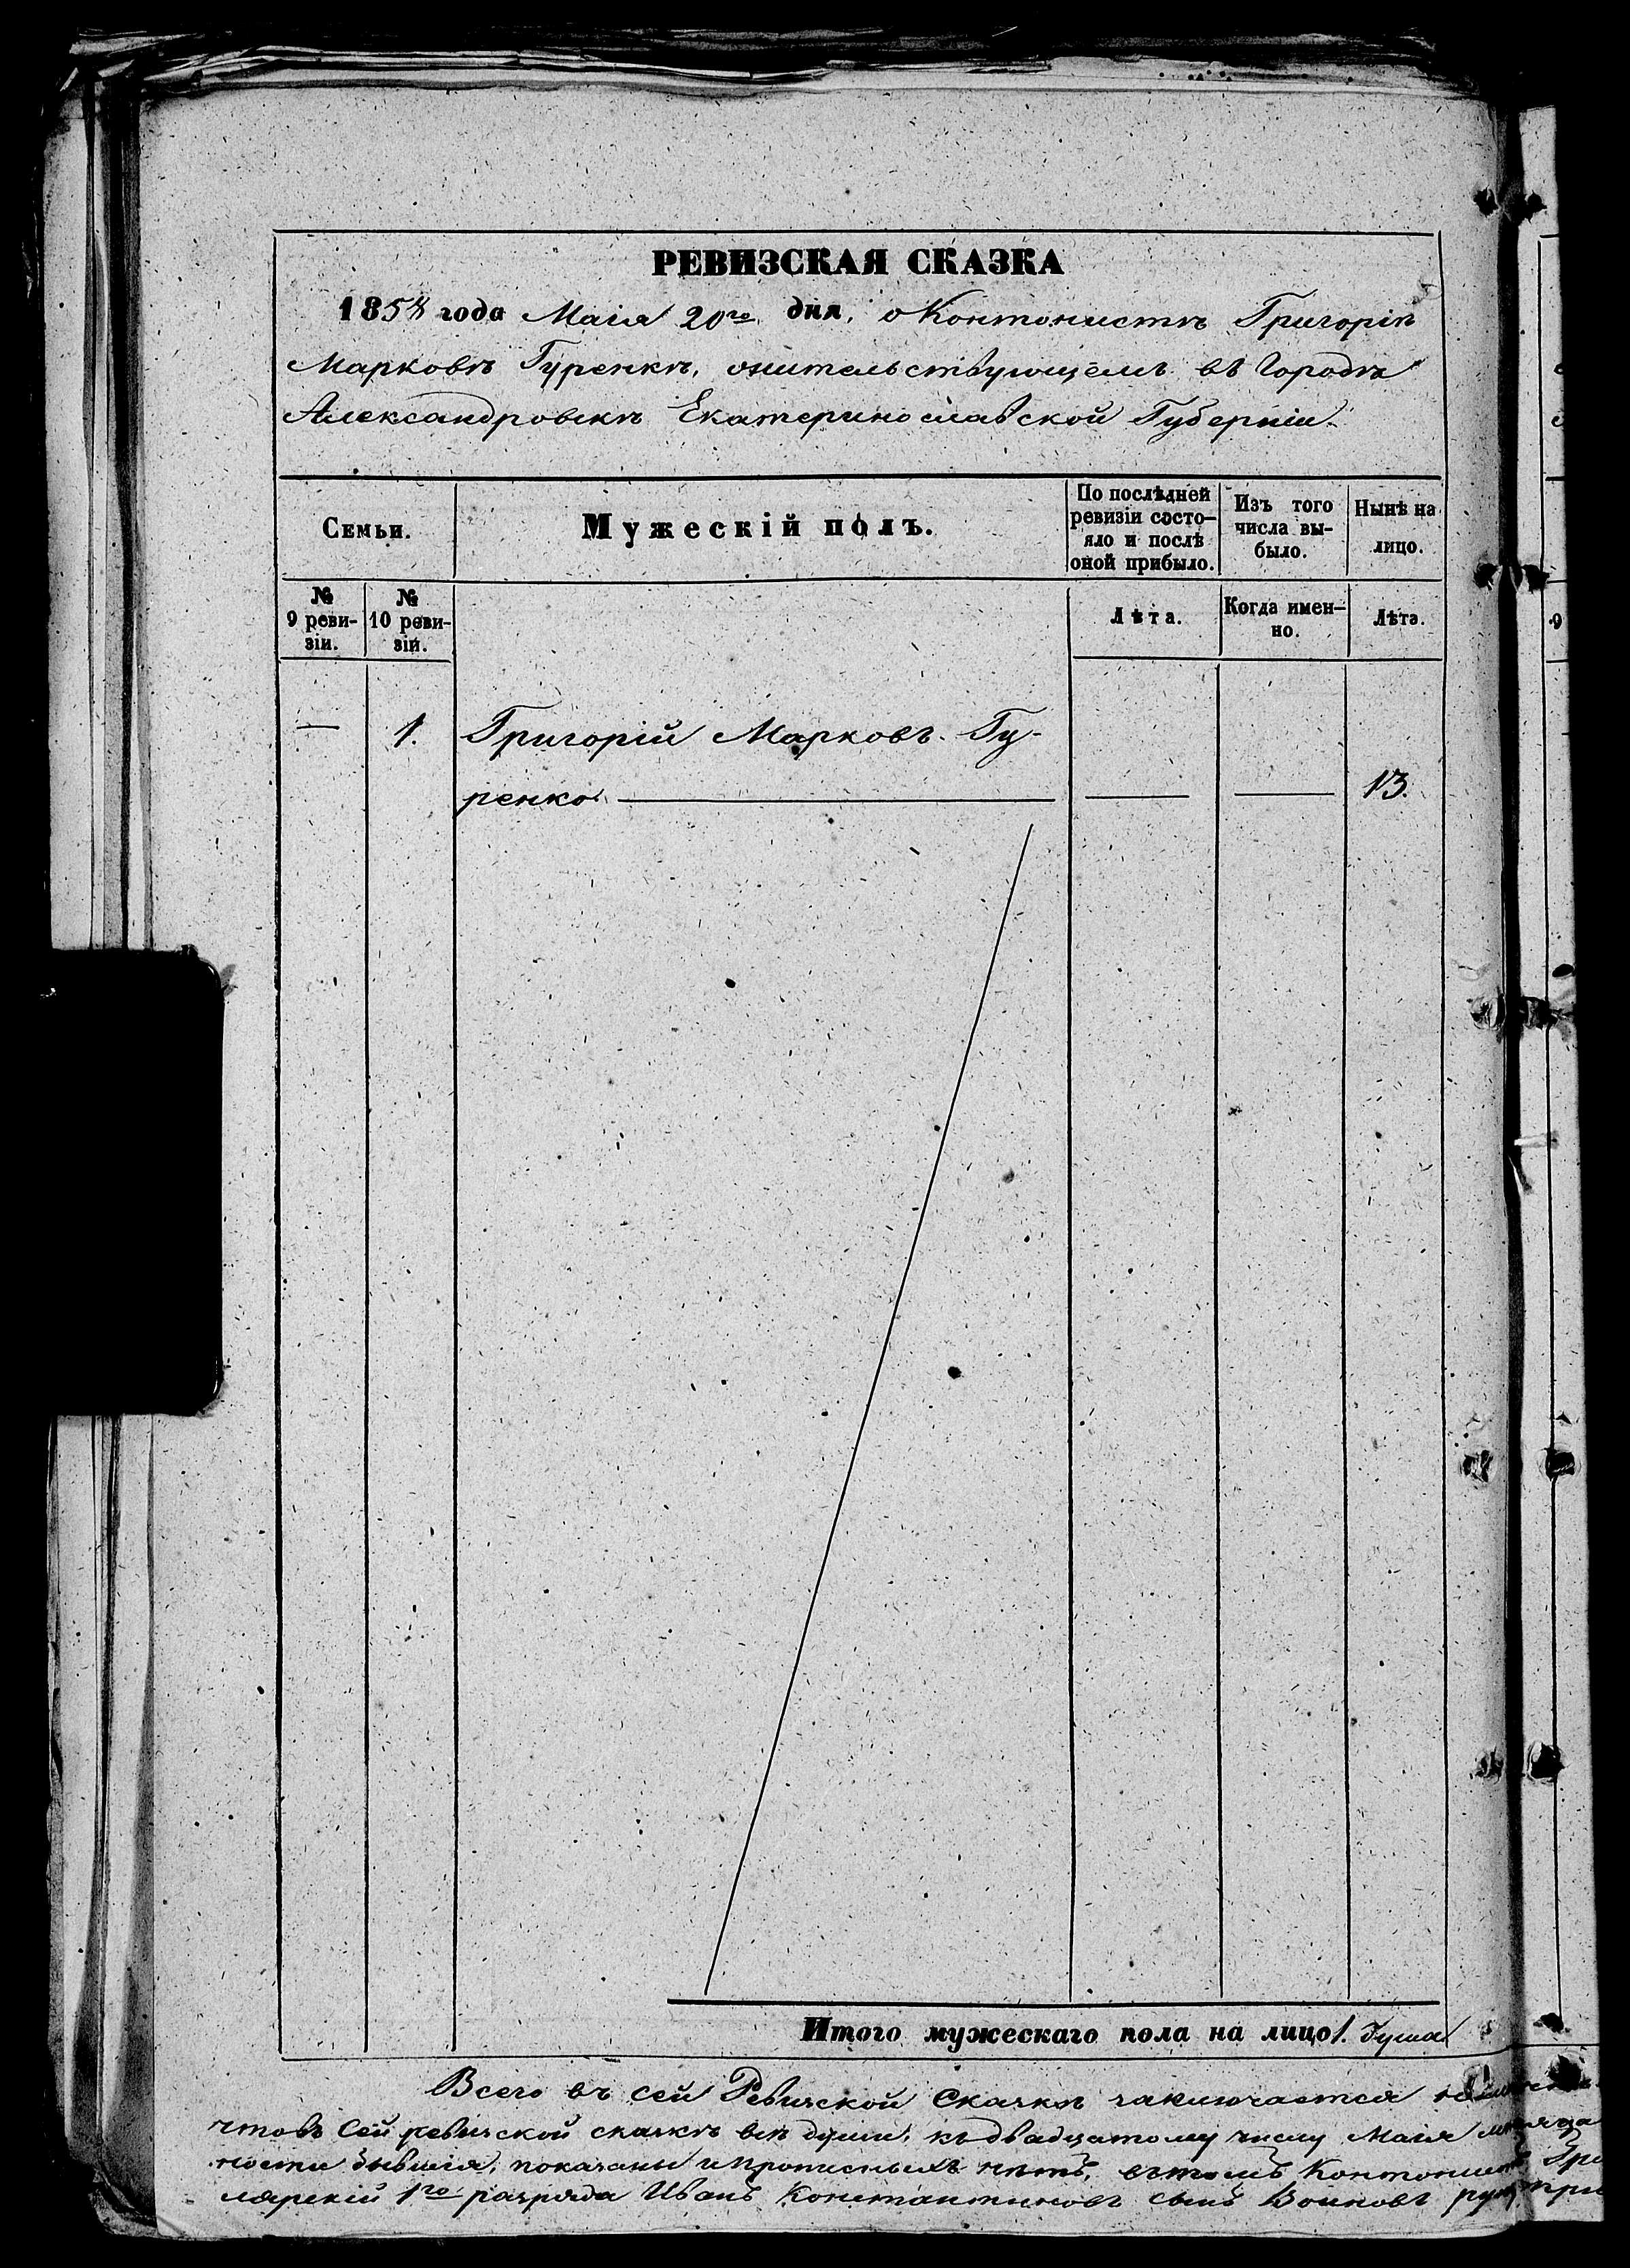 РЕВИЗСКАЯ СКАЗКА
1858 года Маія 20го дня, о Контонистѣ Григоріѣ
Марковѣ Гуренкѣ, жительствующемъ въ Городѣ
Александровскѣ Екатеринославской Губерніи.
Семьи.
Мужескій полъ.
По послѣдней
ревизіи состо-
яло и послѣ
оной прибыло.
Изъ того
числа вы-
было.
Нынѣ на
лицо.
№
9 реви-
зіи.
№
10 реви-
зіи.
Лѣта.
Когда имен-
но.
Лѣта.
— 1. Григорій Марковъ Гу-
ренко — — — 13.
Итого мужескаго пола на лицо 1. душа
Всего въ сей Ревизской Сказкѣ заключается
что въ сей ревизской сказкѣ всѣ души, къ двадцатому числу Маія
ности бывшія, показаны и прописныхъ нѣтъ, въ томъ Контонистъ
лярскій 1го разряда Иванъ Константиновъ сынъ Воиновъ
9